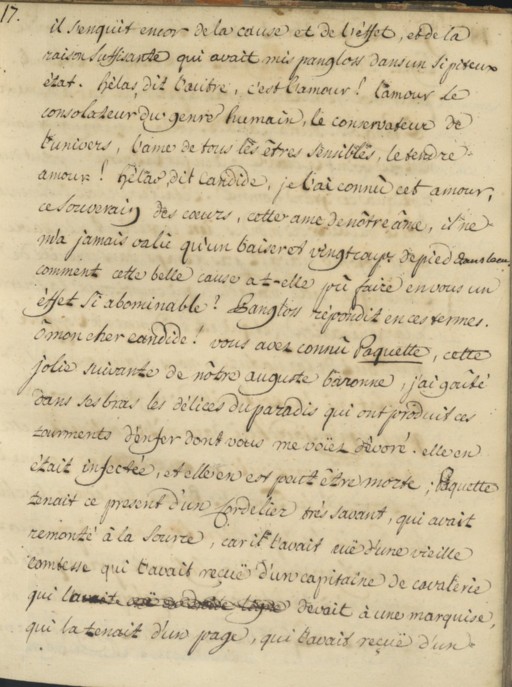 17.
il s'enquit encor de la cause et de l'éffet, et de la
raison suffisante qui avait mis pangloss dans un si piteux
état. hélas, dit l'autre, c'est l'amour! l'amour le
consolateur du genre humain, le conservateur de
l'univers, l'ame de tous les êtres sensibles, le tendre
amour! hélas, dit Candide, je l'ai connû cet amour,
ce souverain des cœurs, cette ame de nôtre âme, il ne
m'a jamais valû qu'un baiser et vingt coups de pied dans le cu.
comment cette belle cause a t-elle pû faire en vous un
éffet si abominable? Pangloss répondit en ces termes.
Ô mon cher candide! vous avez connû Paquette, cette
jolie suivante de nôtre auguste baronne, j'ai goûté
dans ses bras les délices du paradis qui ont produit ces
tourments d'enfer dont vous me voïez dévoré. elle en
était infectée, et elle en est peut être morte; Paquette
tenait ce present d'un Cordelier trés savant, qui avait
remonté à la source, car il l'avait euë d'une vieille
comtesse qui l'avait reçuë d'un capitaine de cavalerie
qui la devait à une marquise,
qui la tenait d'un page, qui l'avait reçuë d'un